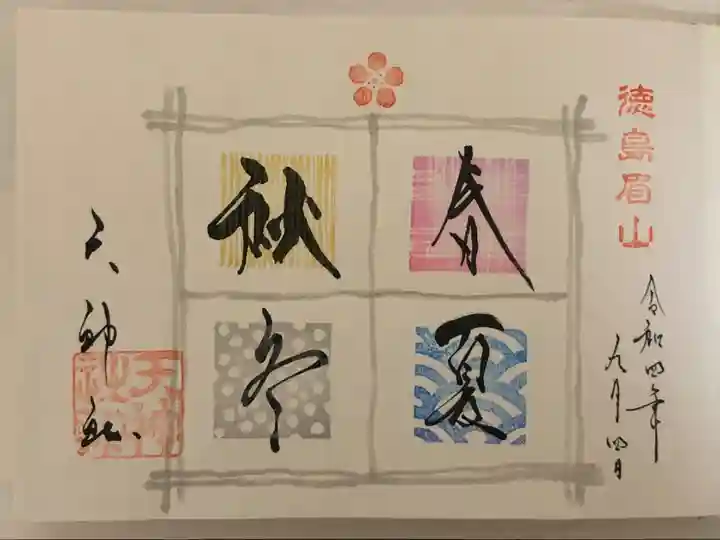 徳島眉山
令和四年
九月四日
春
夏
秋
冬
天神社
天神社印